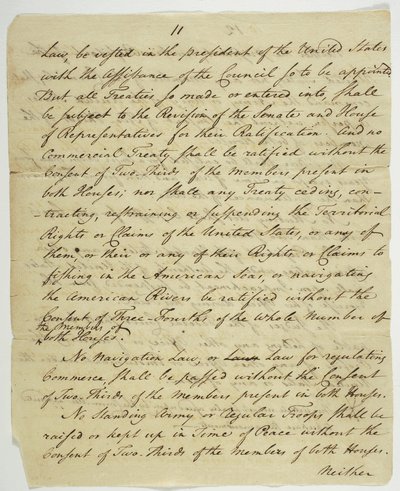 11
Law, be vested in the President of the United States
with the Assistance of the Council so to be appointed
But, all Treaties so made or entered into, shall
be subject to the Revision of the Senate and House
of Representatives for their Ratification. And no
Commercial Treaty shall be ratified without the
Consent of Two-Thirds of the Members present in
both Houses; nor shall any Treaty ceding, con-
-tracting, restraining or suspending the Territorial
Rights or Claims of the United States, or any of
them, or their or any of their Rights or Claims to
fishing in the American Seas, or navigating
the American Rivers be ratified without the
Consent of Three-Fourths of the whole Number of
the Members of
both Houses.
No Navigation Law, or Law Law for regulating
Commerce, shall be passed without the Consent
of Two-Thirds of the Members present in both Houses.
No Standing Army or Regular Troops shall be
raised or kept up in Time of Peace without the
Consent of Two-Thirds of the Members of both Houses.
Neither